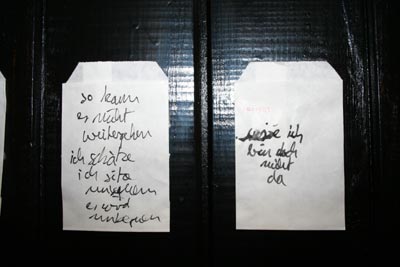 so kann
es nicht
weitergehen
ich schätze
ich sitze
unbequem
es wird
unbequem
ich
bin doch
nicht
da